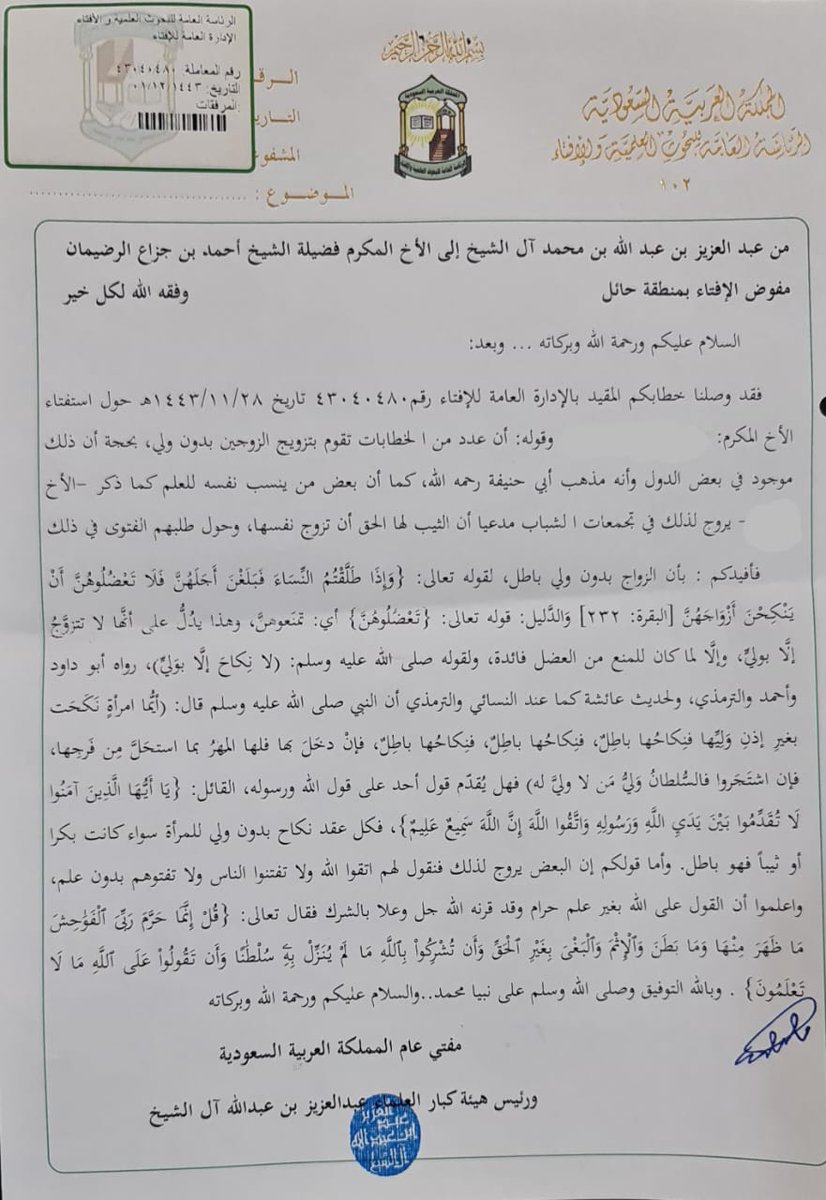 الرئاسة العامة للبحوث العلمية و الأفتاء
الإدارة العامة للإفتاء
رقم المعاملة: ٤٣٠٤٠٤٨٠
التاريخ: ٠١/١٢/١٤٤٣
المرفقات:
بسم الله الرحمن الرحيم
المملكة العربية السعودية
الرئاسة العامة للبحوث العلمية والإفتاء
١٠٢
الـرقـ
التـاريـ
المشفوعـ
المـوضـوع :
من عبد العزيز بن عبد الله بن محمد آل الشيخ إلى الأخ المكرم فضيلة الشيخ أحمد بن جزاع الرضيمان
مفوض الإفتاء بمنطقة حائل وفقه الله لكل خير
السلام عليكم ورحمة الله وبركاته ... وبعد:
فقد وصلنا خطابكم المقيد بالإدارة العامة للإفتاء رقم٤٣٠٤٠٤٨٠ تاريخ ١٤٤٣/١١/٢٨هـ حول استفتاء
الأخ المكرم: وقوله: أن عدد من ا لخطابات تقوم بتزويج الزوجين بدون ولي، بحجة أن ذلك
موجود في بعض الدول وأنه مذهب أبي حنيفة رحمه الله، كما أن بعض من ينسب نفسه للعلم كما ذكر –الأخ
- يروج لذلك في تجمعات ا لشباب مدعيا أن الثيب لها الحق أن تزوج نفسها، وحول طلبهم الفتوى في ذلك
فأفيدكم : بأن الزواج بدون ولي باطل، لقوله تعالى: {وَإِذَا طَلَّقْتُمُ النِّسَاءَ فَبَلَغْنَ أَجَلَهُنَّ فَلَا تَعْضُلُوهُنَّ أَنْ
يَنْكِحْنَ أَزْوَاجَهُنَّ [البقرة: ٢٣٢] وَالدَّليل: قوله تعالى: {تَعْضُلُوهُنَّ} أي: تمنَعوهنَّ، وهذا يدُلُّ على أنَّها لا تتزوَّجُ
إلَّا بوليٍّ، وإلَّا لما كان للمنع من العضل فائدة، ولقوله صلى الله عليه وسلم: (لا نِكاحَ إلَّا بوَليٍّ)، رواه أبو داود
وأحمد والترمذي، ولحديث عائشة كما عند النسائي والترمذي أن النبي صلى الله عليه وسلم قال: (أيُّما امرأةٍ نَكَحَت
بغيرِ إذنِ وَلِيِّها فنِكاحُها باطِلٌ، فنِكاحُها باطِلٌ، فنِكاحُها باطِلٌ، فإنْ دخَلَ بها فلها المهرُ بما استحَلَّ مِن فَرجِها،
فإن اشتَجَروا فالسُّلطانُ وَليُّ مَن لا وليَّ له) فهل يُقدّم قول أحد على قول الله ورسوله، القائل: {يَا أَيُّهَا الَّذِينَ آمَنُوا
لَا تُقَدِّمُوا بَيْنَ يَدَيِ اللَّهِ وَرَسُولِهِ وَاتَّقُوا اللَّهَ إِنَّ اللَّهَ سَمِيعٌ عَلِيمٌ}، فكل عقد نكاح بدون ولي للمرأة سواء كانت بكرا
أو ثيباً فهو باطل. وأما قولكم إن البعض يروج لذلك فنقول لهم اتقوا الله ولا تفتنوا الناس ولا تفتوهم بدون علم،
واعلموا أن القول على الله بغير علم حرام وقد قرنه الله جل وعلا بالشرك فقال تعالى: {قُلْ إِنَّمَا حَرَّمَ رَبِّيَ ٱلْفَوَٰحِشَ
مَا ظَهَرَ مِنْهَا وَمَا بَطَنَ وَٱلْإِثْمَ وَٱلْبَغْىَ بِغَيْرِ ٱلْحَقِّ وَأَن تُشْرِكُوا۟ بِٱللَّهِ مَا لَمْ يُنَزِّلْ بِهِۦ سُلْطَٰنًا وَأَن تَقُولُوا۟ عَلَى ٱللَّهِ مَا لَا
تَعْلَمُونَ} . وبالله التوفيق وصلى الله وسلم على نبيا محمد..والسلام عليكم ورحمة الله وبركاته
مفتي عام المملكة العربية السعودية
ورئيس هيئة كبار العلماء عبدالعزيز بن عبدالله آل الشيخ
عبدالعزيز
ابن عبدالله
آل الشيخ